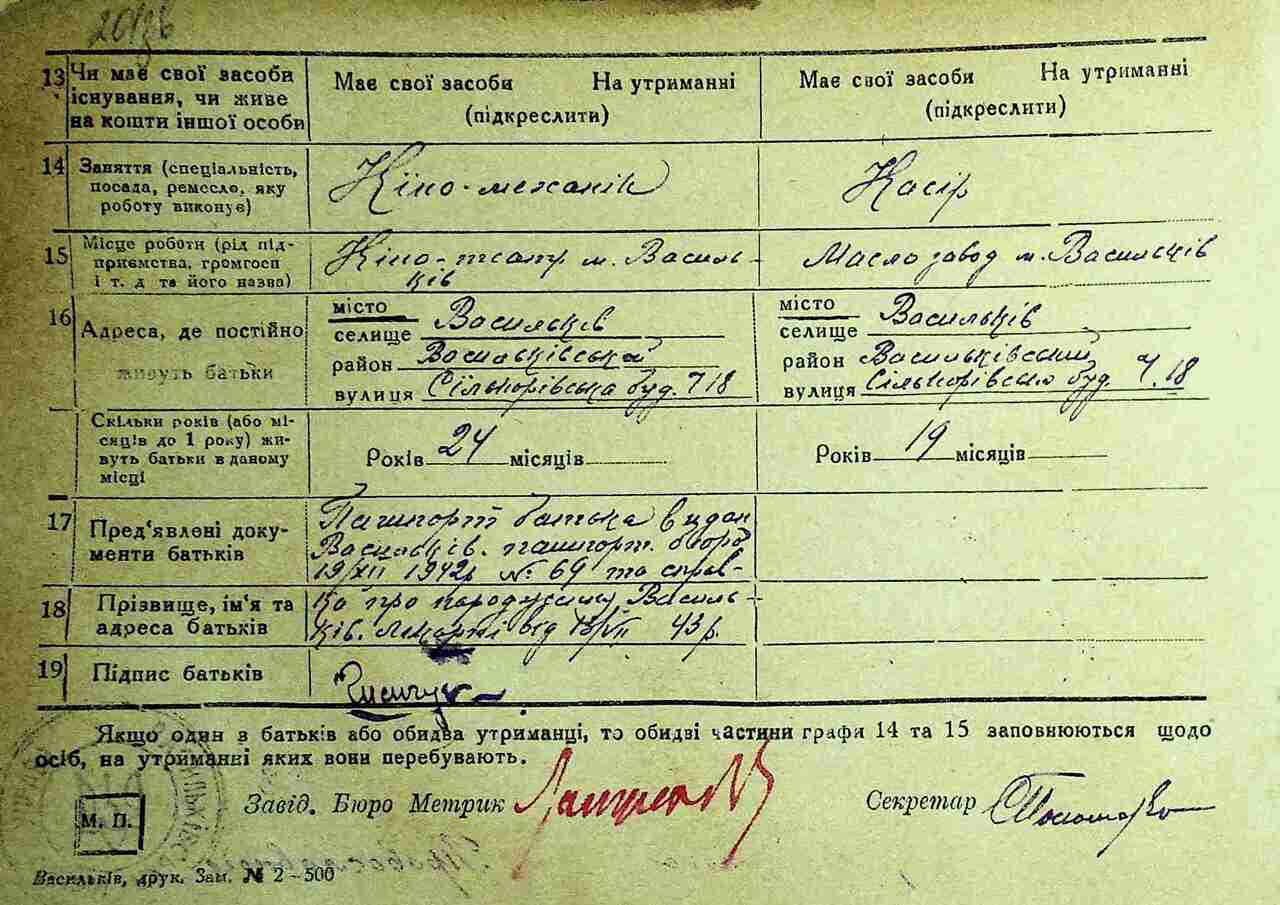 13 Чи має свої засоби існування, чи живе на кошти іншої особи
Має свої засоби На утриманні
(підкреслити)
Має свої засоби На утриманні
(підкреслити)
14 Заняття (спеціальність,
посада, ремесло, яку
роботу виконує)
Кіно-механік
Касір
15 Місце роботи (рід під-
приємства, громгосп
і т. д та його назва)
Кіно-театр м. Василь-
ків
Масло завод м. Васильків
16 Адреса, де постійно
живуть батьки
місто
селище Васильків
район Васильківський
вулиця Сількорівська буд. 718
місто
селище Васильків
район Васильківський
вулиця Сількорівська буд. 7.18
Скільки років (або мі-
сяців до 1 року) жи-
вуть батьки в даному
місці
Років 24 місяців
Років 19 місяців
17 Пред'явлені доку-
менти батьків
Пашпорт батька видан
Васильків. пашпорт. бюро
19/XII 1942р № 69 та справ-
18 Прізвище, ім'я та
адреса батьків
ка про народження Василь-
ків. лікарні від 13/VII 43 р.
19 Підпис батьків
Якщо один з батьків або обидва утриманці, то обидві частини графи 14 та 15 заповнюються щодо
осіб, на утриманні яких вони перебувають.
М. П.
Завід. Бюро Метрик
Секретар
Васильків, друк. Зам. № 2-500